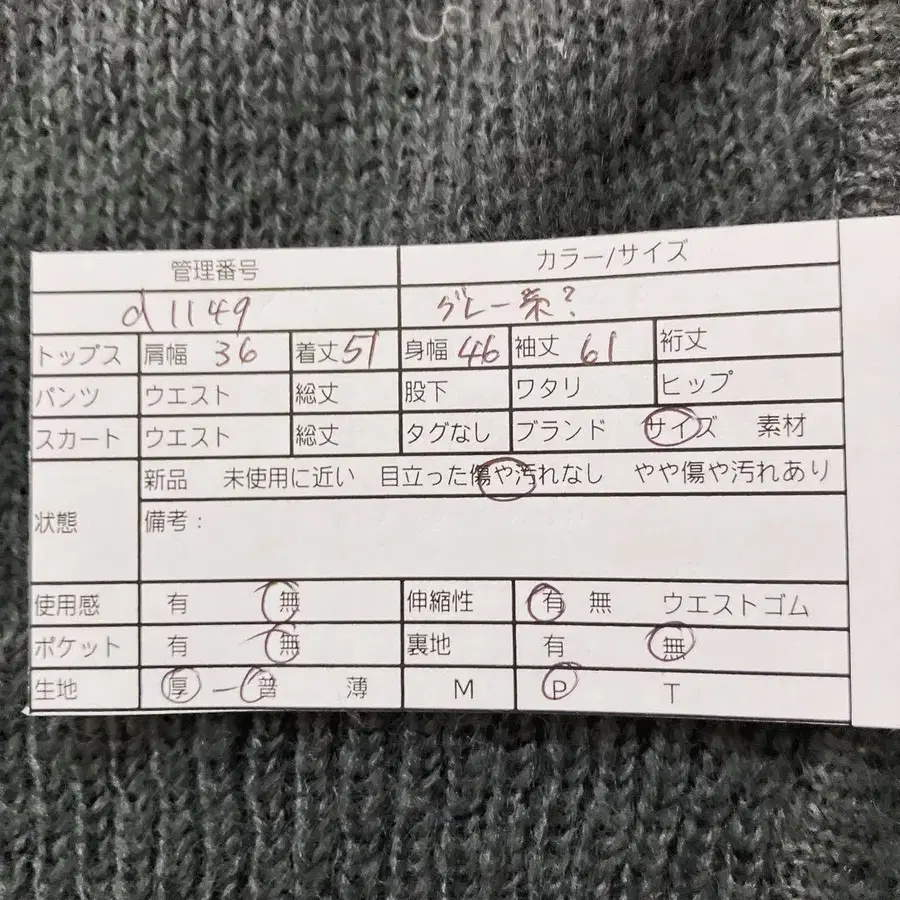 管理番号 カラー/サイズ
d1149 グレー系?
トップス 肩幅 36 着丈 51 身幅 46 袖丈 61 裄丈
パンツ ウエスト 総丈 股下 ワタリ ヒップ
スカート ウエスト 総丈 タグなし ブランド サイズ 素材
状態 新品 未使用に近い 目立った傷や汚れなし やや傷や汚れあり
備考:
使用感 有 無 伸縮性 有 無 ウエストゴム
ポケット 有 無 裏地 有 無
生地 厚 ー 普 薄 M P T